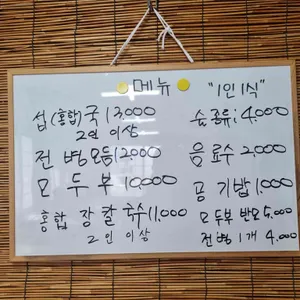 메뉴
"1인 1식"
섭(홍합)국 13,000
2인 이상
전병모둠 12,000
모두부 10,000
홍합 장칼국수 11,000
2인 이상
술종류 4,000
음료수 2,000
공기밥 1,000
모두부 반모 5,000
전병 1개 4,000